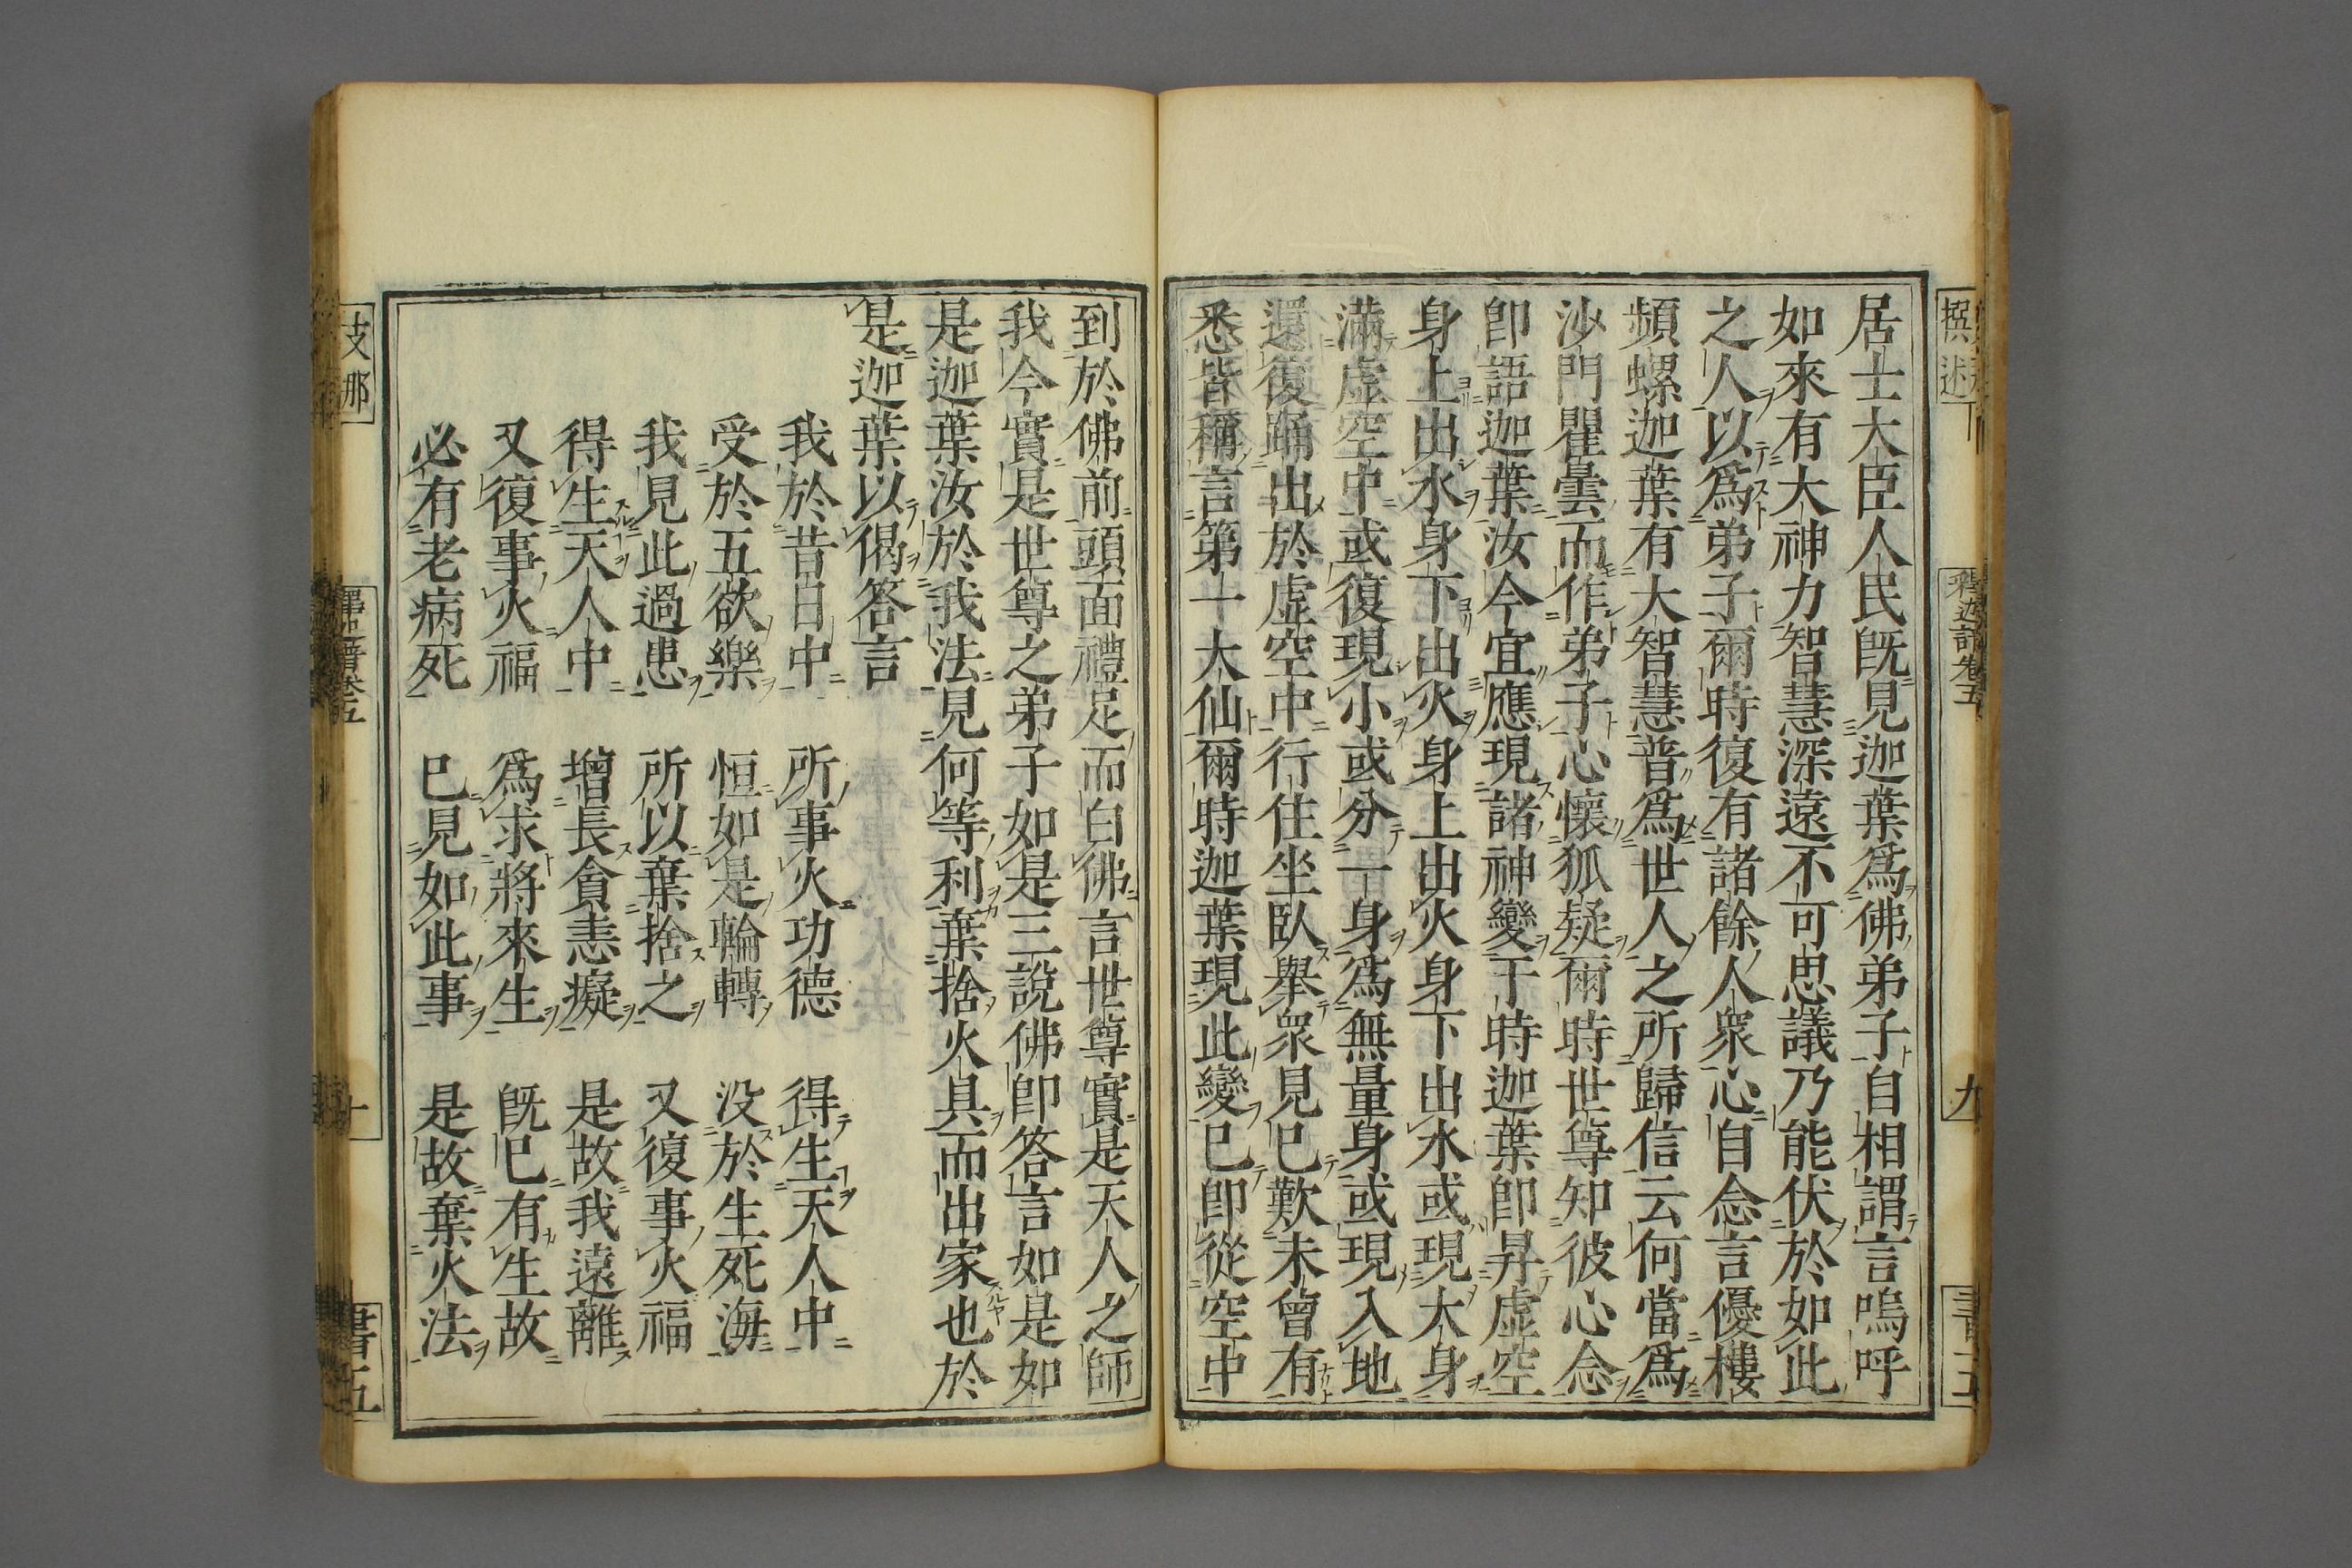 居士大臣人民既見迦葉爲佛弟子自相謂言嗚呼
如來有大神力智慧深遠不可思議乃能伏於如此
之人以爲弟子爾時復有諸餘人衆心自念言優樓
頻螺迦葉有大智慧普爲世人之所歸信云何當爲
沙門瞿曇而作弟子心懷狐疑爾時世尊知彼心念
卽語迦葉汝今宜應現諸神變于時迦葉卽昇虛空
身上出水身下出火身上出火身下出水或現大身
滿虛空中或復現小或分一身爲無量身或現入地
還復踊出於虛空中行住坐臥舉衆見已歎未曾有
悉皆稱言第一大仙爾時迦葉現此變已卽從空中
到於佛前頭面禮足而白佛言世尊實是天人之師
我今實是世尊之弟子如是三說佛卽答言如是如
是迦葉汝於我法見何等利棄捨火具而出家也於
是迦葉以偈答言
我於昔日中　所事火功德　得生天人中
受於五欲樂　恒如是輪轉　没於生死海
我見此過患　所以棄捨之　又復事火福
得生天人中　增長貪恚癡　是故我遠離
又復事火福　爲求將來生　既已有生故
必有老病死　已見如此事　是故棄火法
撰述下
釋迦譜卷五
九
支那
十
書五